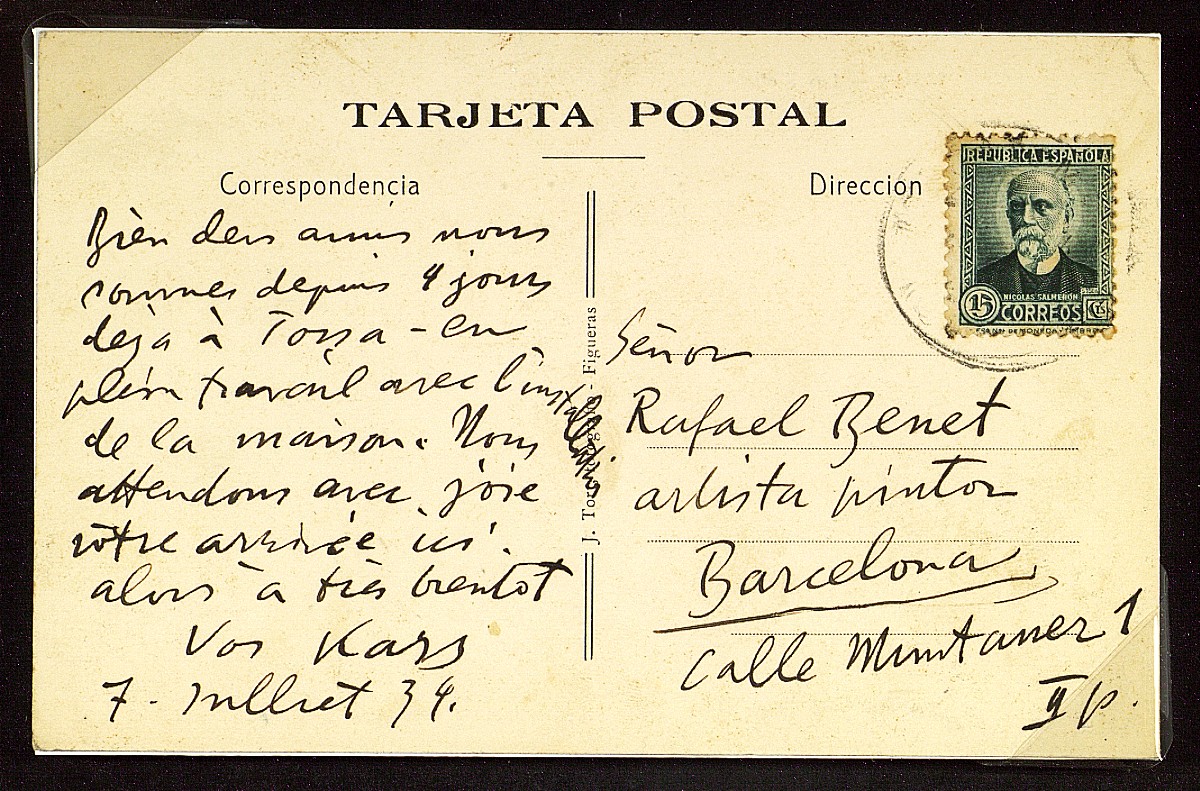 TARJETA POSTAL
Correspondencia
Direccion
REPUBLICA ESPAÑOLA
NICOLAS SALMERON
15 CORREOS Cts
Bien chers amis nous
sommes depuis 4 jours
déja à Tossa - en
plein travail avec l'installation
de la maison. Nous
attendons avec joie
vôtre arrivée ici.
alors à très bientot
Vos Kars
7 - Juilliet 34.
J. Tor - Figueras
Señor
Rafael Benet
artista pintor
Barcelona
Calle Muntaner 1
II p.